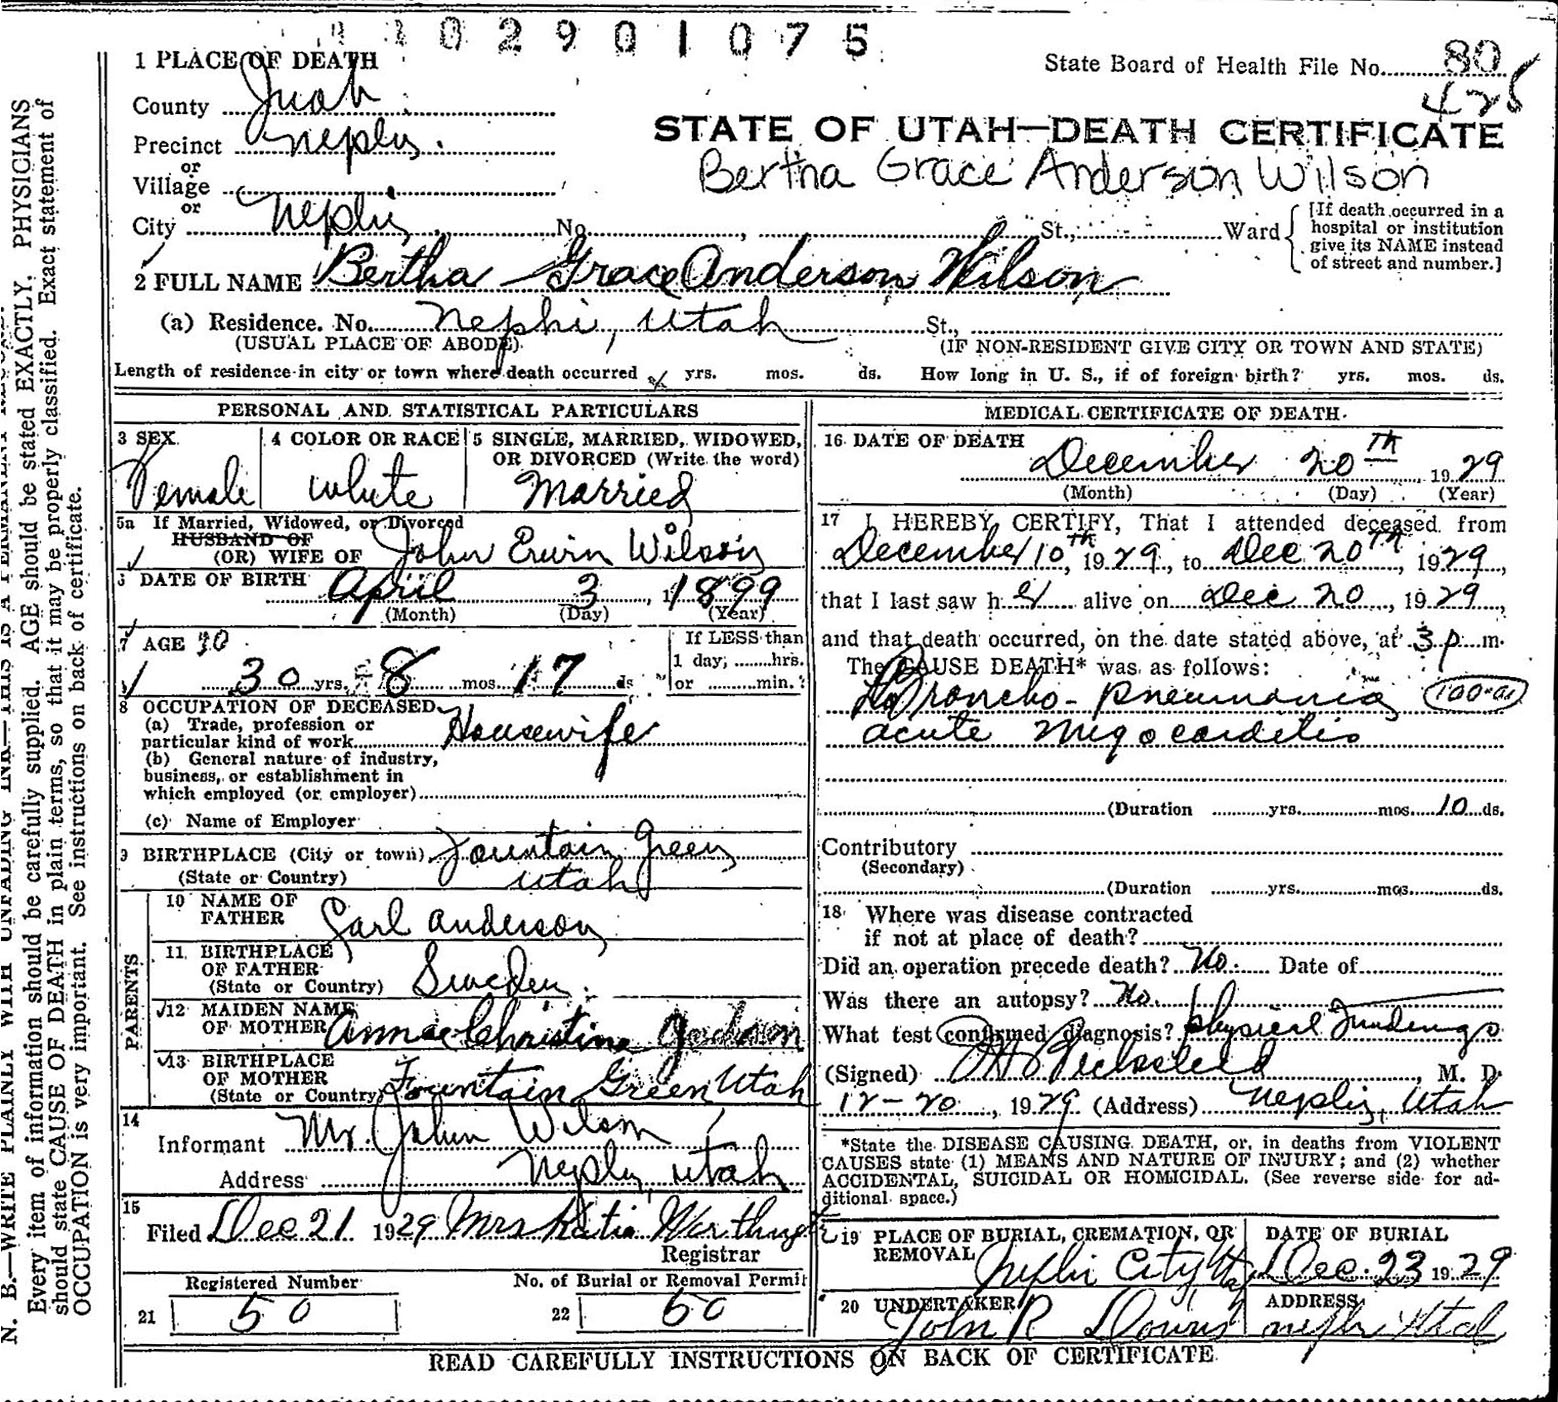 02901075
1 PLACE OF DEATH
State Board of Health File No. 80
425
County Juab
STATE OF UTAH—DEATH CERTIFICATE
Precinct Nephi.
or
Bertha Grace Anderson Wilson
Village
or
City Nephi, No. , St., Ward
[If death occurred in a
hospital or institution
give its NAME instead
of street and number.]
2 FULL NAME Bertha Grace Anderson Wilson
(a) Residence. No. Nephi, Utah St.,
(USUAL PLACE OF ABODE) (IF NON-RESIDENT GIVE CITY OR TOWN AND STATE)
Length of residence in city or town where death occurred yrs. mos. ds. How long in U. S., if of foreign birth? yrs. mos. ds.
PERSONAL AND STATISTICAL PARTICULARS
3 SEX
Female
4 COLOR OR RACE
White
5 SINGLE, MARRIED, WIDOWED,
OR DIVORCED (Write the word)
Married
5a If Married, Widowed, or Divorced
HUSBAND OF
(OR) WIFE OF John Erwin Wilson
6 DATE OF BIRTH April 3, 1899
(Month) (Day) (Year)
7 AGE 30
30 yrs. 8 mos. 17 ds
If LESS than
1 day, hrs.
or min.
8 OCCUPATION OF DECEASED
(a) Trade, profession or
particular kind of work Housewife
(b) General nature of industry,
business, or establishment in
which employed (or employer)
(c) Name of Employer
9 BIRTHPLACE (City or town) Fountain Green
(State or Country) Utah
PARENTS
10 NAME OF
FATHER Carl Anderson
11 BIRTHPLACE
OF FATHER
(State or Country) Sweden.
12 MAIDEN NAME
OF MOTHER Annie Christine
13 BIRTHPLACE
OF MOTHER
(State or Country) Fountain Green Utah
14
Informant Mr. John Wilson
Address Nephi, Utah
15
Filed Dec 21 1929 Mrs Katie
Registrar
Registered Number
21 50
No. of Burial or Removal Permit
22 50
MEDICAL CERTIFICATE OF DEATH.
16 DATE OF DEATH
December 20th 1929
(Month) (Day) (Year)
17 I HEREBY CERTIFY, That I attended deceased from
December 10th, 1929, to Dec 20th, 1929,
that I last saw her alive on Dec 20, 1929,
and that death occurred, on the date stated above, at 3 p m.
The CAUSE DEATH* was as follows:
Broncho-pneumonia
acute Myocarditis
(Duration yrs. mos. 10 ds.
Contributory
(Secondary)
(Duration yrs. mos. ds.
18 Where was disease contracted
if not at place of death?
Did an operation precede death? No. Date of
Was there an autopsy? No.
What test confirmed diagnosis? Physical Findings
(Signed) , M. D.
12-20, 1929 (Address) Nephi, Utah
*State the DISEASE CAUSING DEATH, or, in deaths from VIOLENT
CAUSES state (1) MEANS AND NATURE OF INJURY; and (2) whether
ACCIDENTAL, SUICIDAL OR HOMICIDAL. (See reverse side for ad-
ditional space.)
19 PLACE OF BURIAL, CREMATION, OR
REMOVAL Nephi City
DATE OF BURIAL
Dec. 23 1929
20 UNDERTAKER
John R Downs
ADDRESS
Nephi Utah
READ CAREFULLY INSTRUCTIONS ON BACK OF CERTIFICATE
N. B.—WRITE PLAINLY WITH UNFADING INK—THIS IS A PERMANENT
Every item of information should be carefully supplied. AGE should be stated EXACTLY. PHYSICIANS
should state CAUSE OF DEATH in plain terms, so that it may be properly classified. Exact statement of
OCCUPATION is very important. See instructions on back of certificate.